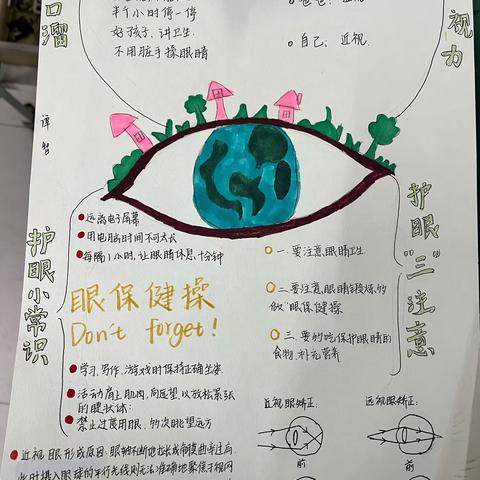 口溜
半个小时停一停
好孩子、讲卫生
不用脏手揉眼睛
自己：近视
视力
谭智
护眼小常识
远离电子屏幕
用电脑时间不可太长
每隔1小时,让眼睛休息,十分钟
眼保健操
Don't forget!
学习、写作、游戏时保持正确坐姿
活动肩上肌肉,向远望,以放松紧张
的腱状体;
禁止过度用眼、多次眺望远方
护眼"三"注意
一.要注意眼睛卫生
二.要注意眼睛锻炼,多
做"眼保健操
三.要多吃保护眼睛的
食物、补充营养
近视眼矫正:
远视眼矫正:
前
前
近视眼形成原因、眼轴不断地拉长或角膜曲率过高
此时摄入眼球的平行光线则无法准确地聚焦于视网